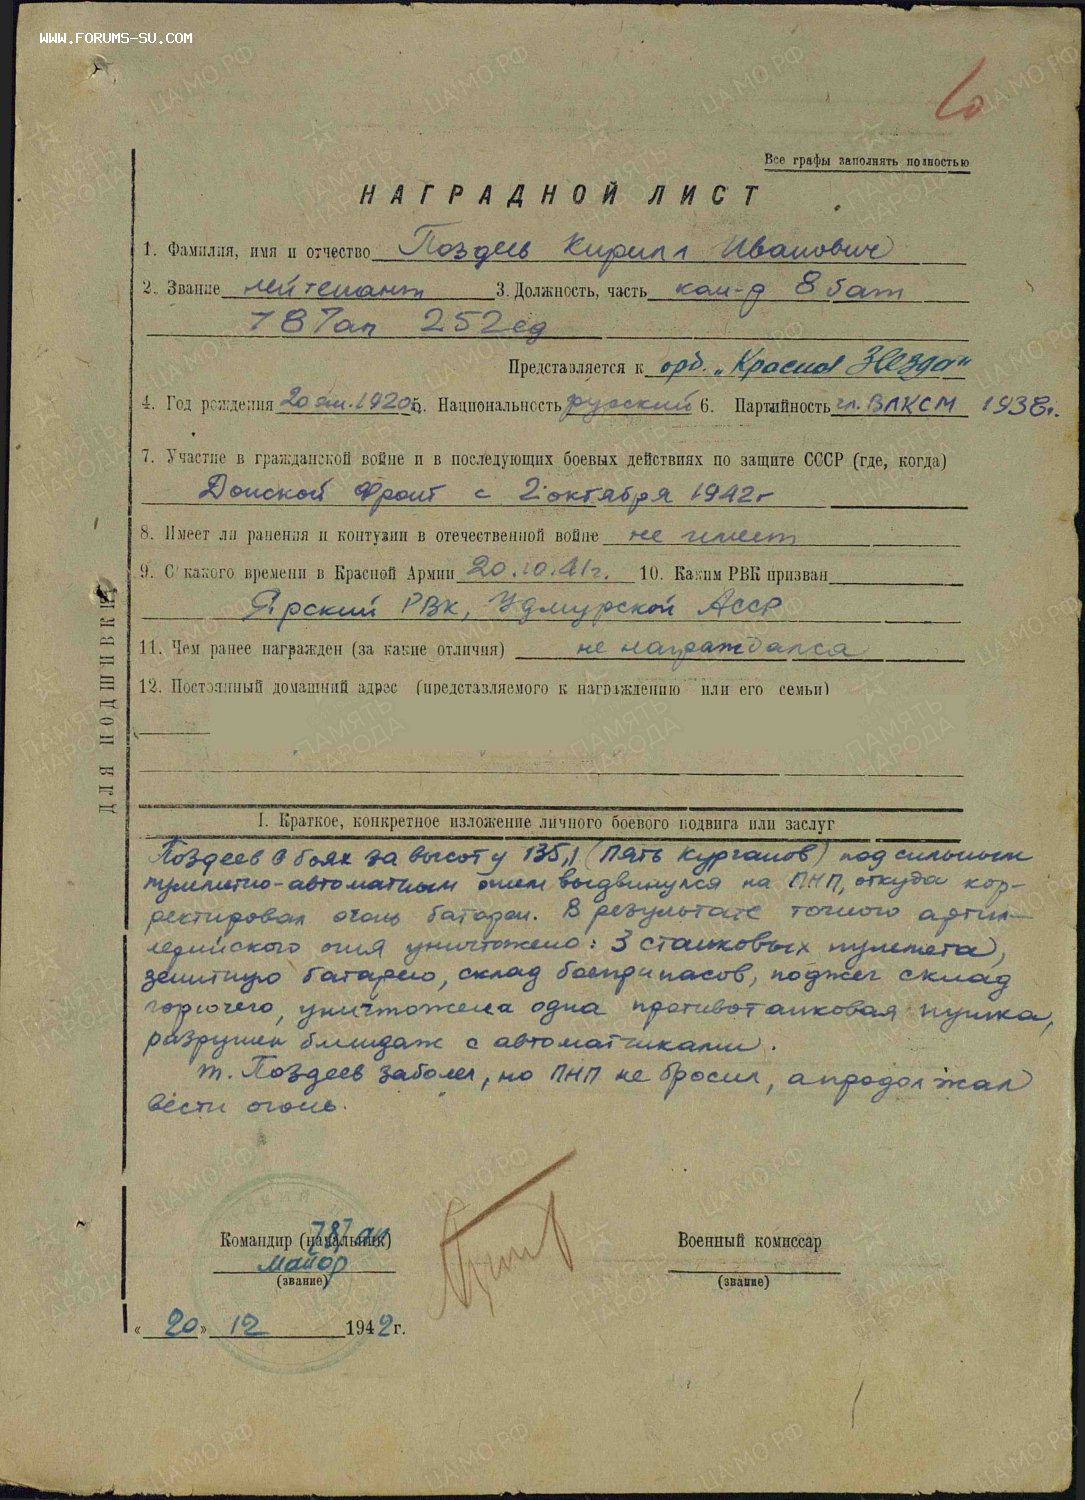 WWW.FORUMS-SU.COM
Все графы заполнять полностью
НАГРАДНОЙ ЛИСТ
1. Фамилия, имя и отчество Поздеев Кирилл Иванович
2. Звание лейтенант 3. Должность, часть ком-р 8 бат
787ап 252сд
Представляется к орд. „Красная Звезда"
4. Год рождения 1920г. 5. Национальность русский 6. Партийность чл. ВЛКСМ 1938г.
7. Участие в гражданской войне и в последующих боевых действиях по защите СССР (где, когда)
Донской Фронт с 2 октября 1942г
8. Имеет ли ранения и контузии в отечественной войне не имеет
9. С какого времени в Красной Армии 20.10.41г. 10. Каким РВК призван
Ярский РВК, Удмурской АССР
11. Чем ранее награжден (за какие отличия) не награждался
12. Постоянный домашний адрес (представляемого к награждению или его семьи)
ДЛЯ ПОДШИВКИ
I. Краткое, конкретное изложение личного боевого подвига или заслуг
Поздеев в боях за высоту 135,1 (Пять курганов) под сильным
пулеметно-автоматным огнем выдвинулся на ПНП, откуда кор-
ректировал огонь батареи. В результате точного артил-
лерийского огня уничтожено: 3 станковых пулемета,
зенитную батарею, склад боеприпасов, поджег склад
горючего, уничтожена одна противотанковая пушка,
разрушен блиндаж с автоматчиками.
т. Поздеев заболел, но ПНП не бросил, а продолжал
вести огонь.
Командир (начальник) 787 ап
Военный комиссар
майор
(звание)
(звание)
«20» 12 1942г.
ЦАМО.РФ
ПАМЯТЬ НАРОДА